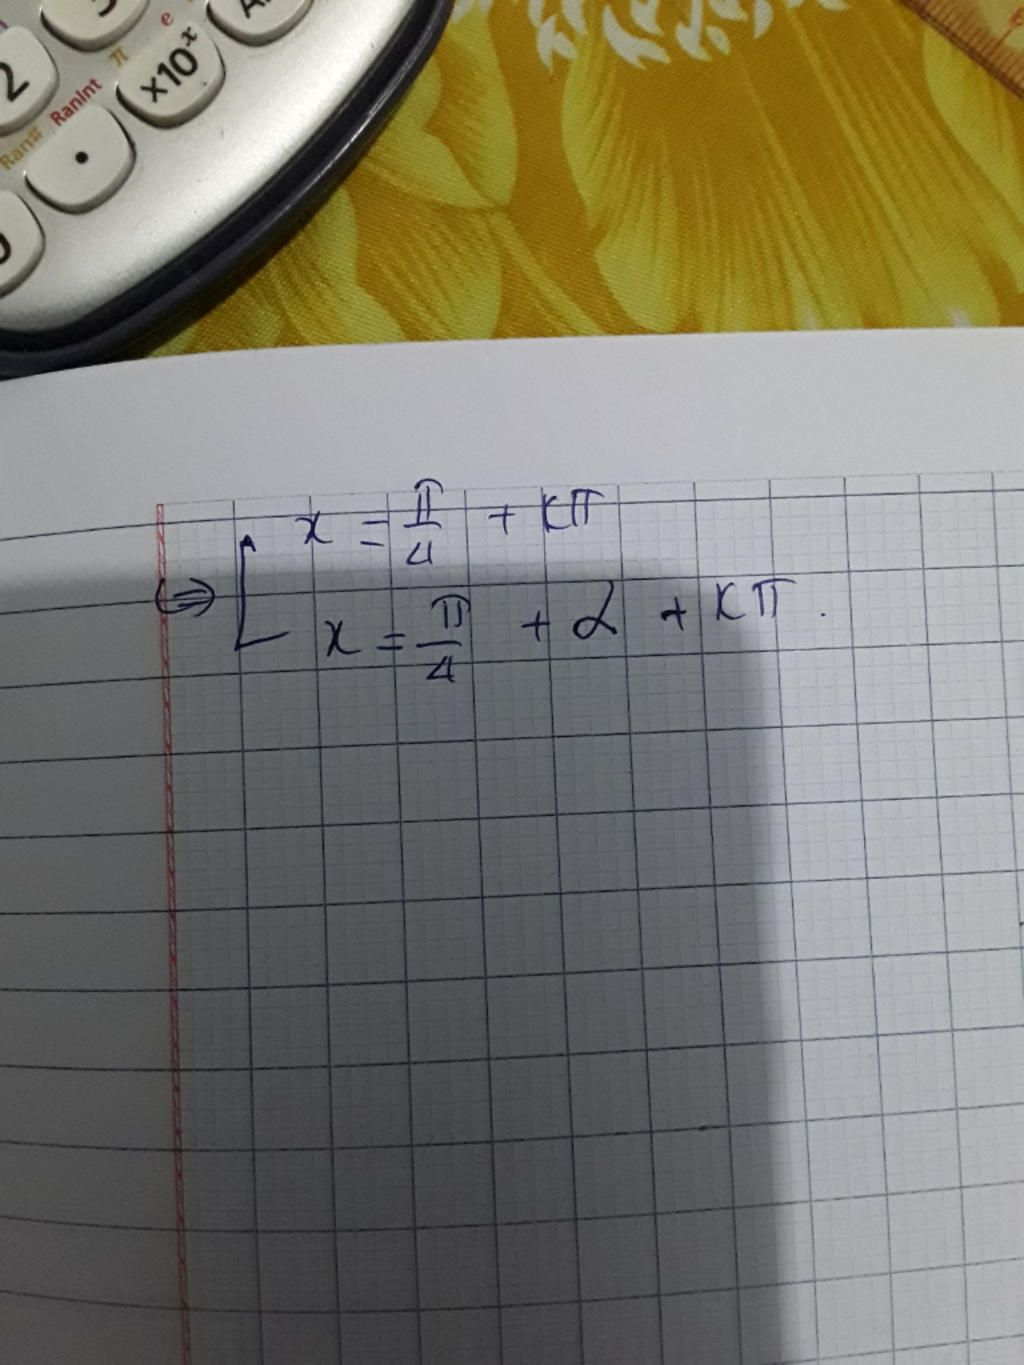 2
Ran#
RanInt
π
e
×10ˣ
•
x = π/4 + kπ
⇔ [
x = π/4 + α + kπ.